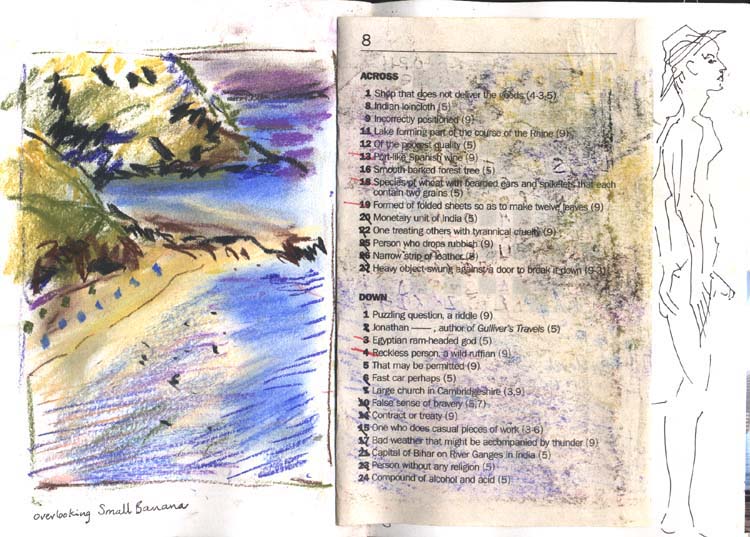 8
ACROSS
1 Shop that does not deliver the goods (4-3-5)
8 Indian loincloth (5)
9 Incorrectly positioned (9)
11 Lake forming part of the course of the Rhine (9)
12 Of the poorest quality (5)
13 Port-like Spanish wine (9)
16 Smooth-barked forest tree (5)
18 Species of wheat with bearded ears and spikelets that each
contain two grains (5)
19 Formed of folded sheets so as to make twelve leaves (9)
20 Monetary unit of India (5)
22 One treating others with tyrannical cruelty (9)
25 Person who drops rubbish (9)
26 Narrow strip of leather (5)
27 Heavy object swung against a door to break it down (9-3)
DOWN
1 Puzzling question, a riddle (9)
2 Jonathan ——, author of Gulliver's Travels (5)
3 Egyptian ram-headed god (5)
4 Reckless person, a wild ruffian (9)
5 That may be permitted (9)
6 Fast car perhaps (5)
7 Large church in Cambridgeshire (3,9)
10 False sense of bravery (5,7)
14 Contract or treaty (9)
15 One who does casual pieces of work (3-6)
17 Bad weather that might be accompanied by thunder (9)
21 Capital of Bihar on River Ganges in India (5)
23 Person without any religion (5)
24 Compound of alcohol and acid (5)
overlooking Small Banana